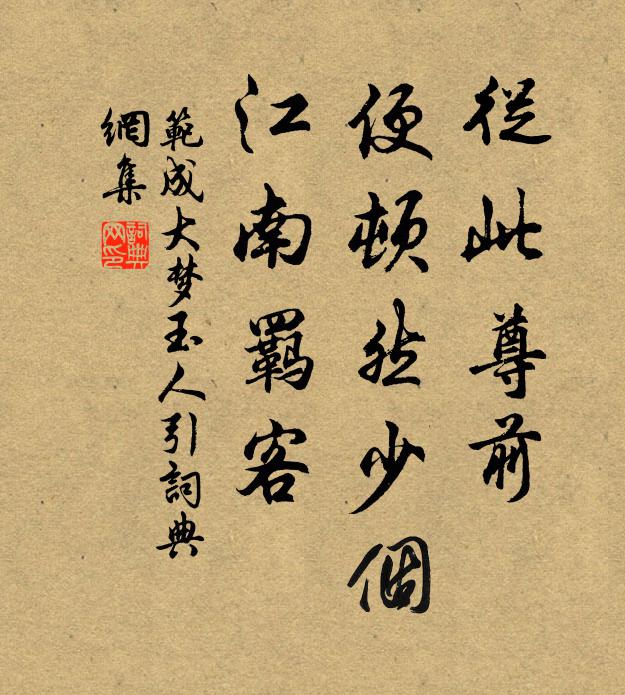 從此尊前
便頓然少個
江南羈客
範成大梦玉人引詞典
網集
詞典
网印